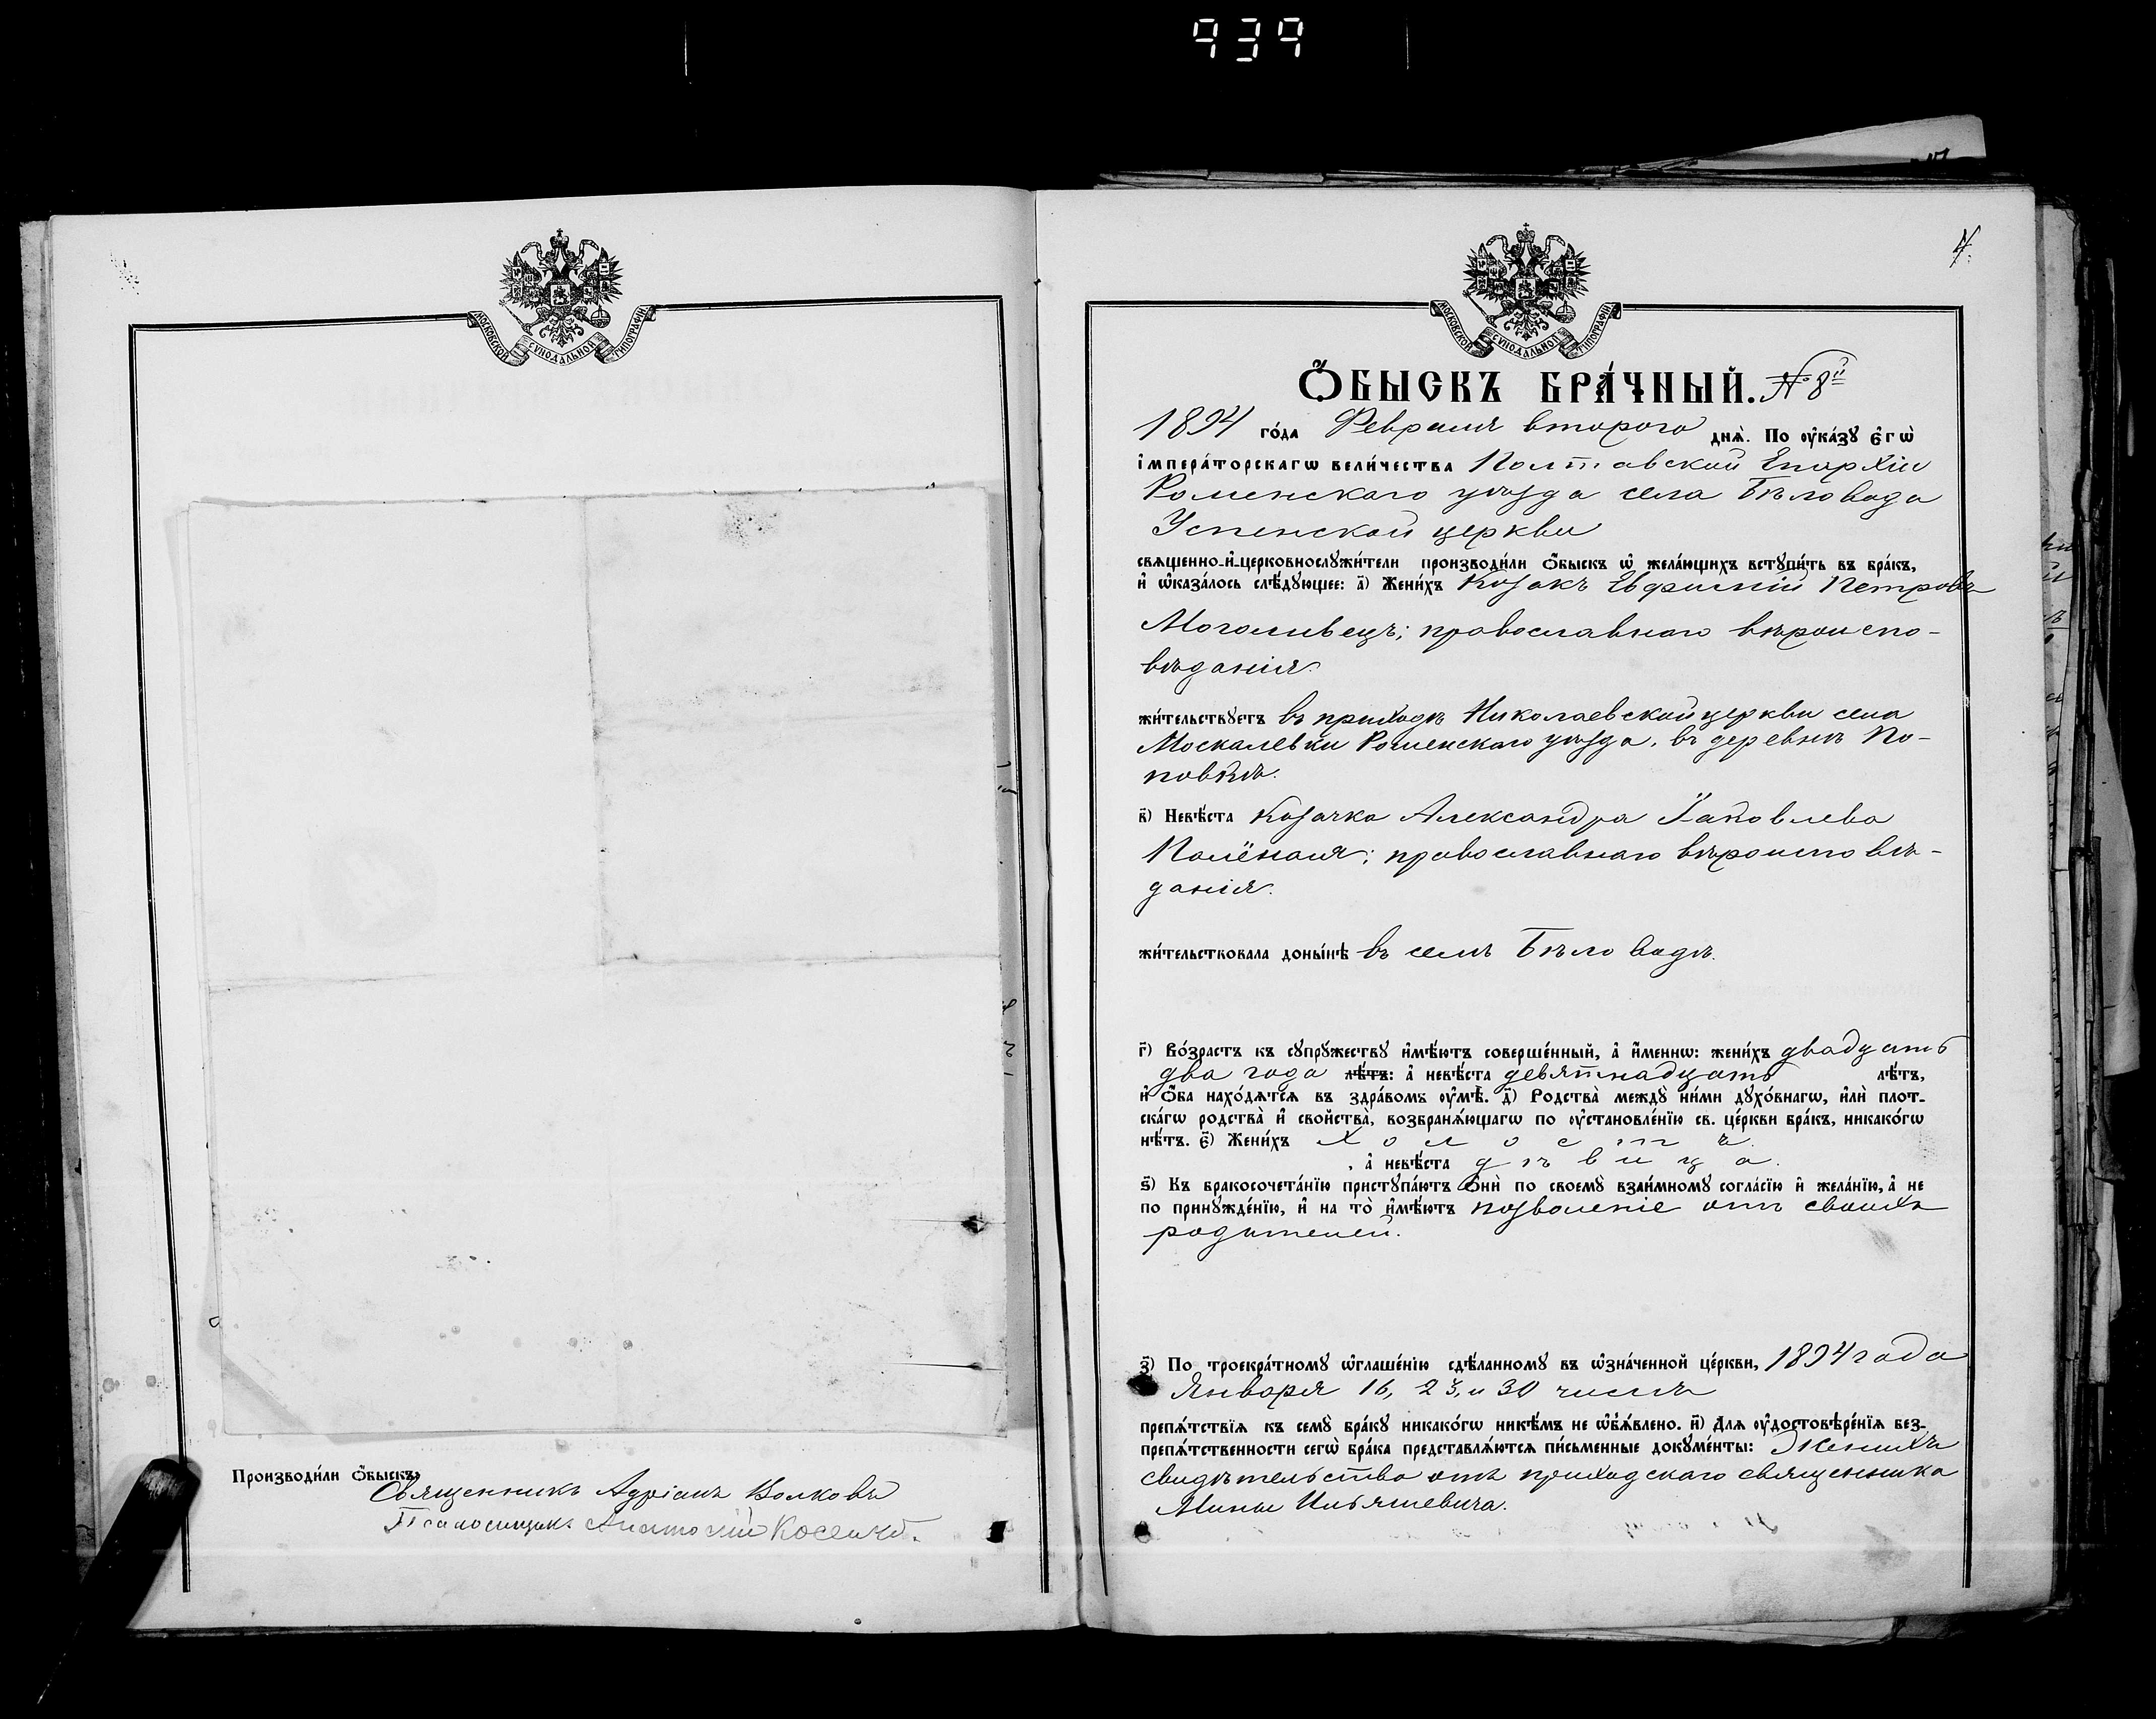 939
МОСКОВСКОЙ СѴНОДАЛЬНОЙ ТИПОГРАФІИ
Производи́ли ѻ҆́быскъ
Священникъ Адріанъ Волковъ
Псаломщикъ Анатолій Косенко.
4.
МОСКОВСКОЙ СѴНОДАЛЬНОЙ ТИПОГРАФІИ
Ѻ҆́БЫСКЪ БРА́ЧНЫЙ. № 8й
1894 го́да Февраля втораго днѧ̀. По ᲂу҆ка́зꙋ є҆гѡ̀
і҆мпера́торскагѡ вели́чества Полтавской Епархіи
Роменскаго уѣзда села Бѣловода
Успенской церкви
свѧщенно-и҆-церковнослꙋжи́тели производи́ли ѻ҆́быскъ ѡ҆ жела́ющихъ встꙋпи́ть въ бра́къ,
и҆ ѡ҆каза́лось слѣ́дꙋющее: а҃) Жени́хъ Козакъ Евфимій Петровъ
Моголивецъ; православнаго вѣроиспо-
вѣданія.
жи́тельствꙋетъ въ приходѣ Николаевской церкви села
Москалевки Роменскаго уѣзда, въ деревнѣ По-
повкѣ.
в҃) Невѣ́ста Козачка Александра Іаковлева
Полёная; православнаго вѣроисповѣ-
данія.
жи́тельствовала доны́нѣ въ селѣ Бѣловодѣ.
г҃) Во́зрастъ къ сꙋпрꙋжествꙋ и҆мѣ́ютъ соверше́нный, а҆ и҆́меннѡ: жени́хъ двадцать
два года лѣ́тъ: а҆ невѣ́ста девятнадцать лѣ́тъ,
и҆ ѻ҆́ба нахо́дѧтсѧ въ здра́вомъ ᲂу҆мѣ̀. д҃) Родства̀ междꙋ̀ ни́ми дꙋхо́внагѡ, и҆лѝ плот-
ска́гѡ родства̀ и҆ свойства̀, возбранѧ́ющагѡ по ᲂу҆становле́нїю св. це́ркви бра́къ, никако́гѡ
нѣ́тъ. є҃) Жени́хъ холостъ.
, а҆ невѣ́ста дѣвица.
ѕ҃) Къ бракосочета́нїю пристꙋпа́ютъ ѻ҆нѝ по своемꙋ̀ взаи́мномꙋ согла́сїю и҆ жела́нїю, а҆ не
по принꙋжде́нїю, и҆ на то̀ и҆мѣ́ютъ позволеніе отъ своихъ
родителей.
з҃) По троекра́тномꙋ ѡ҆глаше́нїю сдѣ́ланномꙋ въ ѡ҆зна́ченной це́ркви, 1894 года
Января 16, 23, и 30 числъ
препѧ́тствїѧ къ семꙋ̀ бра́кꙋ никако́гѡ никѣ́мъ не ѡ҆бъѧ́влено. и҃) Для ᲂу҆достовѣре́нїѧ без-
препѧ́тственности сегѡ̀ бра́ка представлѧ́ютсѧ пи́сьменные докꙋме́нты: Женихъ
свидѣтельство отъ приходскаго священника
Мины Ильяшевича.